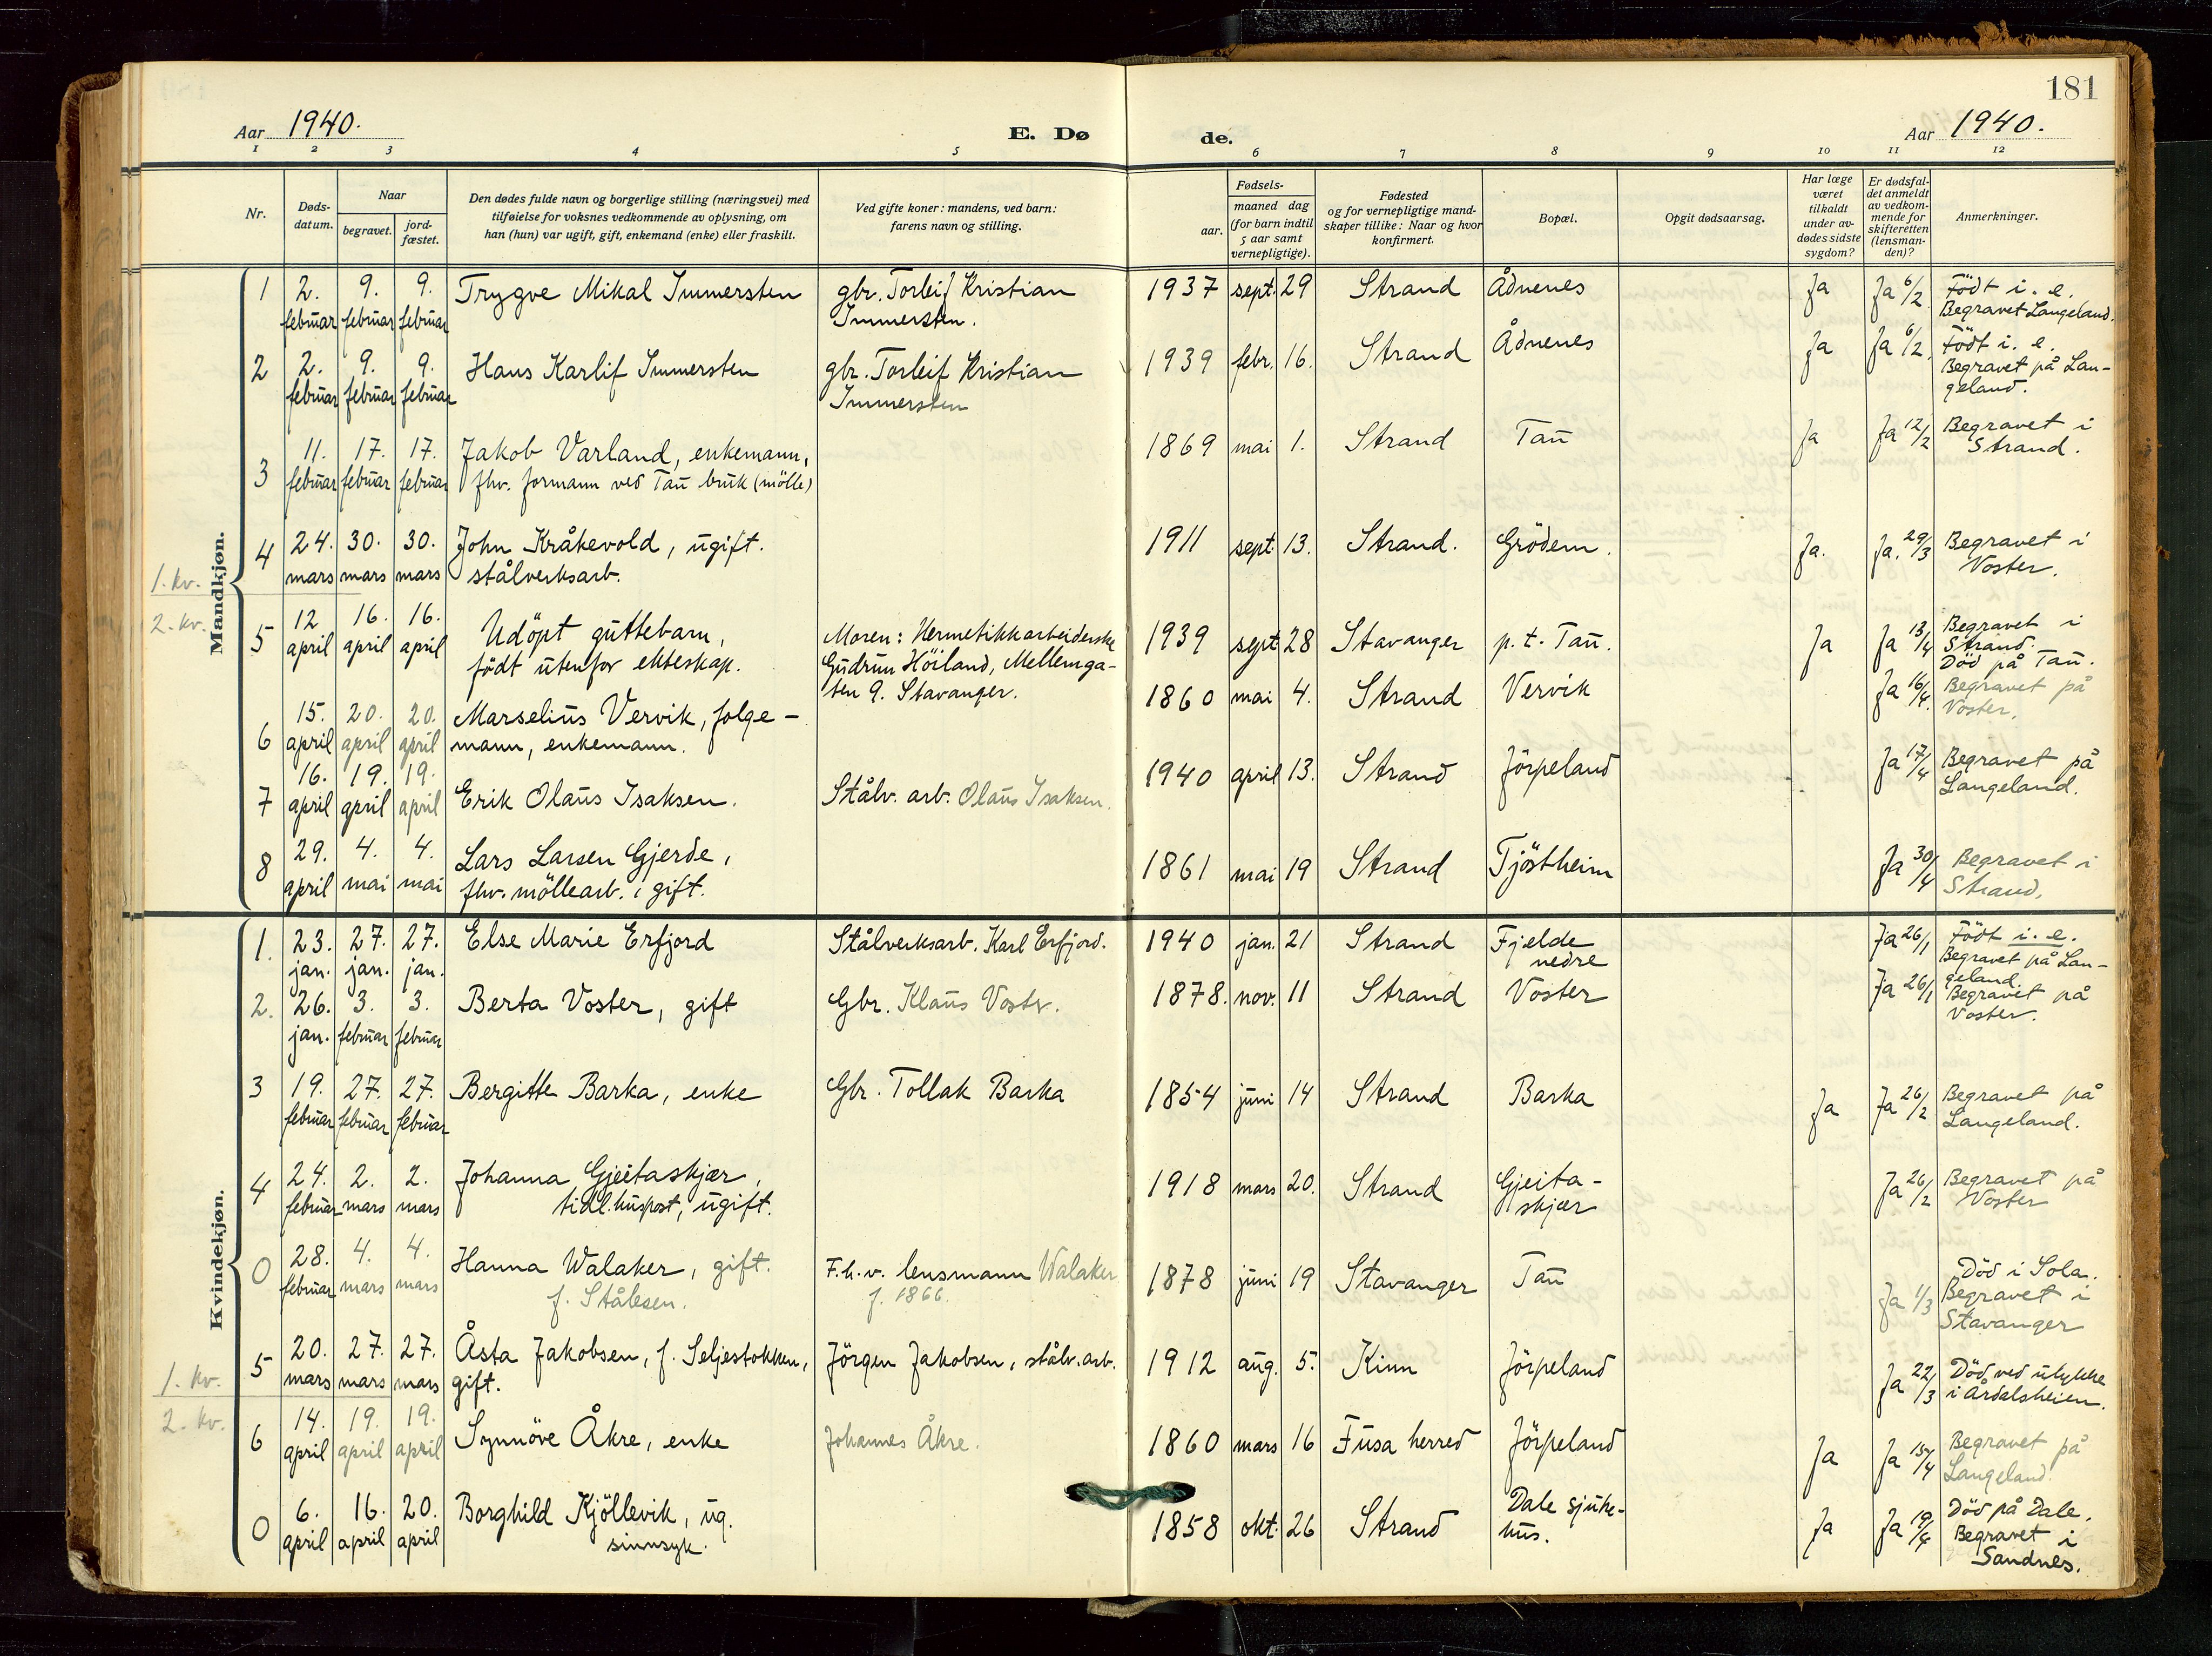 181
Aar 1940. E. Dø de. Aar 1940.
1 2 3 4 5 6 7 8 9 10 11 12
Nr.
Døds-
datum.
Naar
begravet.
jord-
fæstet.
Den dødes fulde navn og borgerlige stilling (næringsvei) med
tilføielse for voksnes vedkommende av oplysning, om
han (hun) var ugift, gift, enkemand (enke) eller fraskilt.
Ved gifte koner: mandens, ved barn:
farens navn og stilling.
Fødsels-
aar.
maaned dag
(for barn indtil
5 aar samt
vernepligtige).
Fødested
og for vernepligtige mand-
skaper tillike: Naar og hvor
konfirmert.
Bopæl.
Opgit dødsaarsag.
Har læge
været
tilkaldt
under av-
dødes sidste
sygdom?
Er dødsfal-
det anmeldt
av vedkom-
mende for
skifteretten
(lensman-
den)?
Anmerkninger.
Mandkjøn.
1 2. 9. 9. Trygve Mikal Immersten gbr. Torleif Kristian 1937 sept. 29 Strand Ådnenes Ja Ja 6/2 Födt i. e.
februar februar februar Immersten. Begravet Langeland.
2 2. 9. 9. Hans Karlif Immersten gbr. Torleif Kristian 1939 febr. 16. Strand Ådnenes Ja Ja 6/2. Födt i. e.
februar februar februar Immersten Begravet på Lan-
geland.
3 11. 17. 17. Jakob Varland, enkemann, 1869 mai 1. Strand Tau Ja Ja 12/2 Begravet i
februar februar februar fhv. formann ved Tau bruk (mölle) Strand.
4 24. 30. 30. John Kråkevold, ugift. 1911 sept. 13. Strand. Grödem. Ja. Ja. 29/3 Begravet i
mars mars mars stålverksarb. Voster.
1. kv.
2. kv.
5 12 16. 16. Udöpt guttebarn, Moren: Hermetikkarbeiderske 1939 sept. 28 Stavanger p. t. Tau. Ja Ja 13/4 Begravet i
april april april födt utenfor ekteskap. Gudrun Höiland, Mellemga- Strand.
ten 9. Stavanger. Död på Tau.
6 15. 20. 20. Marselius Vervik, folge- 1860 mai 4. Strand Vervik Ja 16/4. Begravet på
april april april mann, enkemann. Voster.
7 16. 19. 19. Erik Olaus Isaksen. Stålv. arb. Olaus Isaksen. 1940 april 13. Strand Jörpeland Ja 17/4 Begravet på
april april april Langeland.
8 29. 4. 4. Lars Larsen Gjerde, 1861 mai 19 Strand Tjöstheim Ja 30/4 Begravet i
april mai mai fhv. möllearb. i gift. Strand.
Kvindekjøn.
1. 23. 27. 27. Else Marie Erfjord Stålverksarb. Karl Erfjord. 1940 jan. 21 Strand Fjelde Ja 26/1 Födt i. e.
jan. jan. jan. nedre Begravet på Lan-
geland.
2. 26. 3. 3. Berta Voster, gift Gbr. Klaus Voster. 1878. nov. 11 Strand Voster Ja 26/1 Begravet på
jan. februar februar Voster.
3 19. 27. 27. Bergitte Barka, enke Gbr. Tollak Barka 1854 juni 14 Strand Barka Ja Ja 26/2 Begravet på
februar februar februar Langeland.
4 24. 2. 2. Johanna Gjeitaskjær, 1918 mars 20. Strand Gjeita- Ja 26/2 Begravet på
februar mars mars tidl. huspost, ugift. skjær Voster
0 28. 4. 4. Hanna Walaker, gift. F.h.v. lensmann Walaker 1878 juni 19 Stavanger Tau Ja 1/3 Död i Sola.
februar mars mars f. Stålesen. f. 1866. Begravet i
Stavanger
5 20. 27. 27. Åsta Jakobsen, f. Seljestokken, Jörgen Jakobsen, stålv. arb. 1912 aug. 5. Kinn Jörpeland Ja 22/3 Död ved ulykke
mars mars mars gift. i Årdalsheien.
1. kv.
2. kv.
6 14. 19. 19. Synnöve Åkre, enke Johannes Åkre. 1860 mars 16 Fusa herred Jörpeland Ja Ja 15/4 Begravet på
april april april Langeland.
0 6. 16. 20. Borghild Kjöllevik, ug. 1858 okt. 26 Strand Dale sjuke- Ja Ja 19/4 Död på Dale.
april april april sinnsyk. hus. Begravet i
Sandnes.